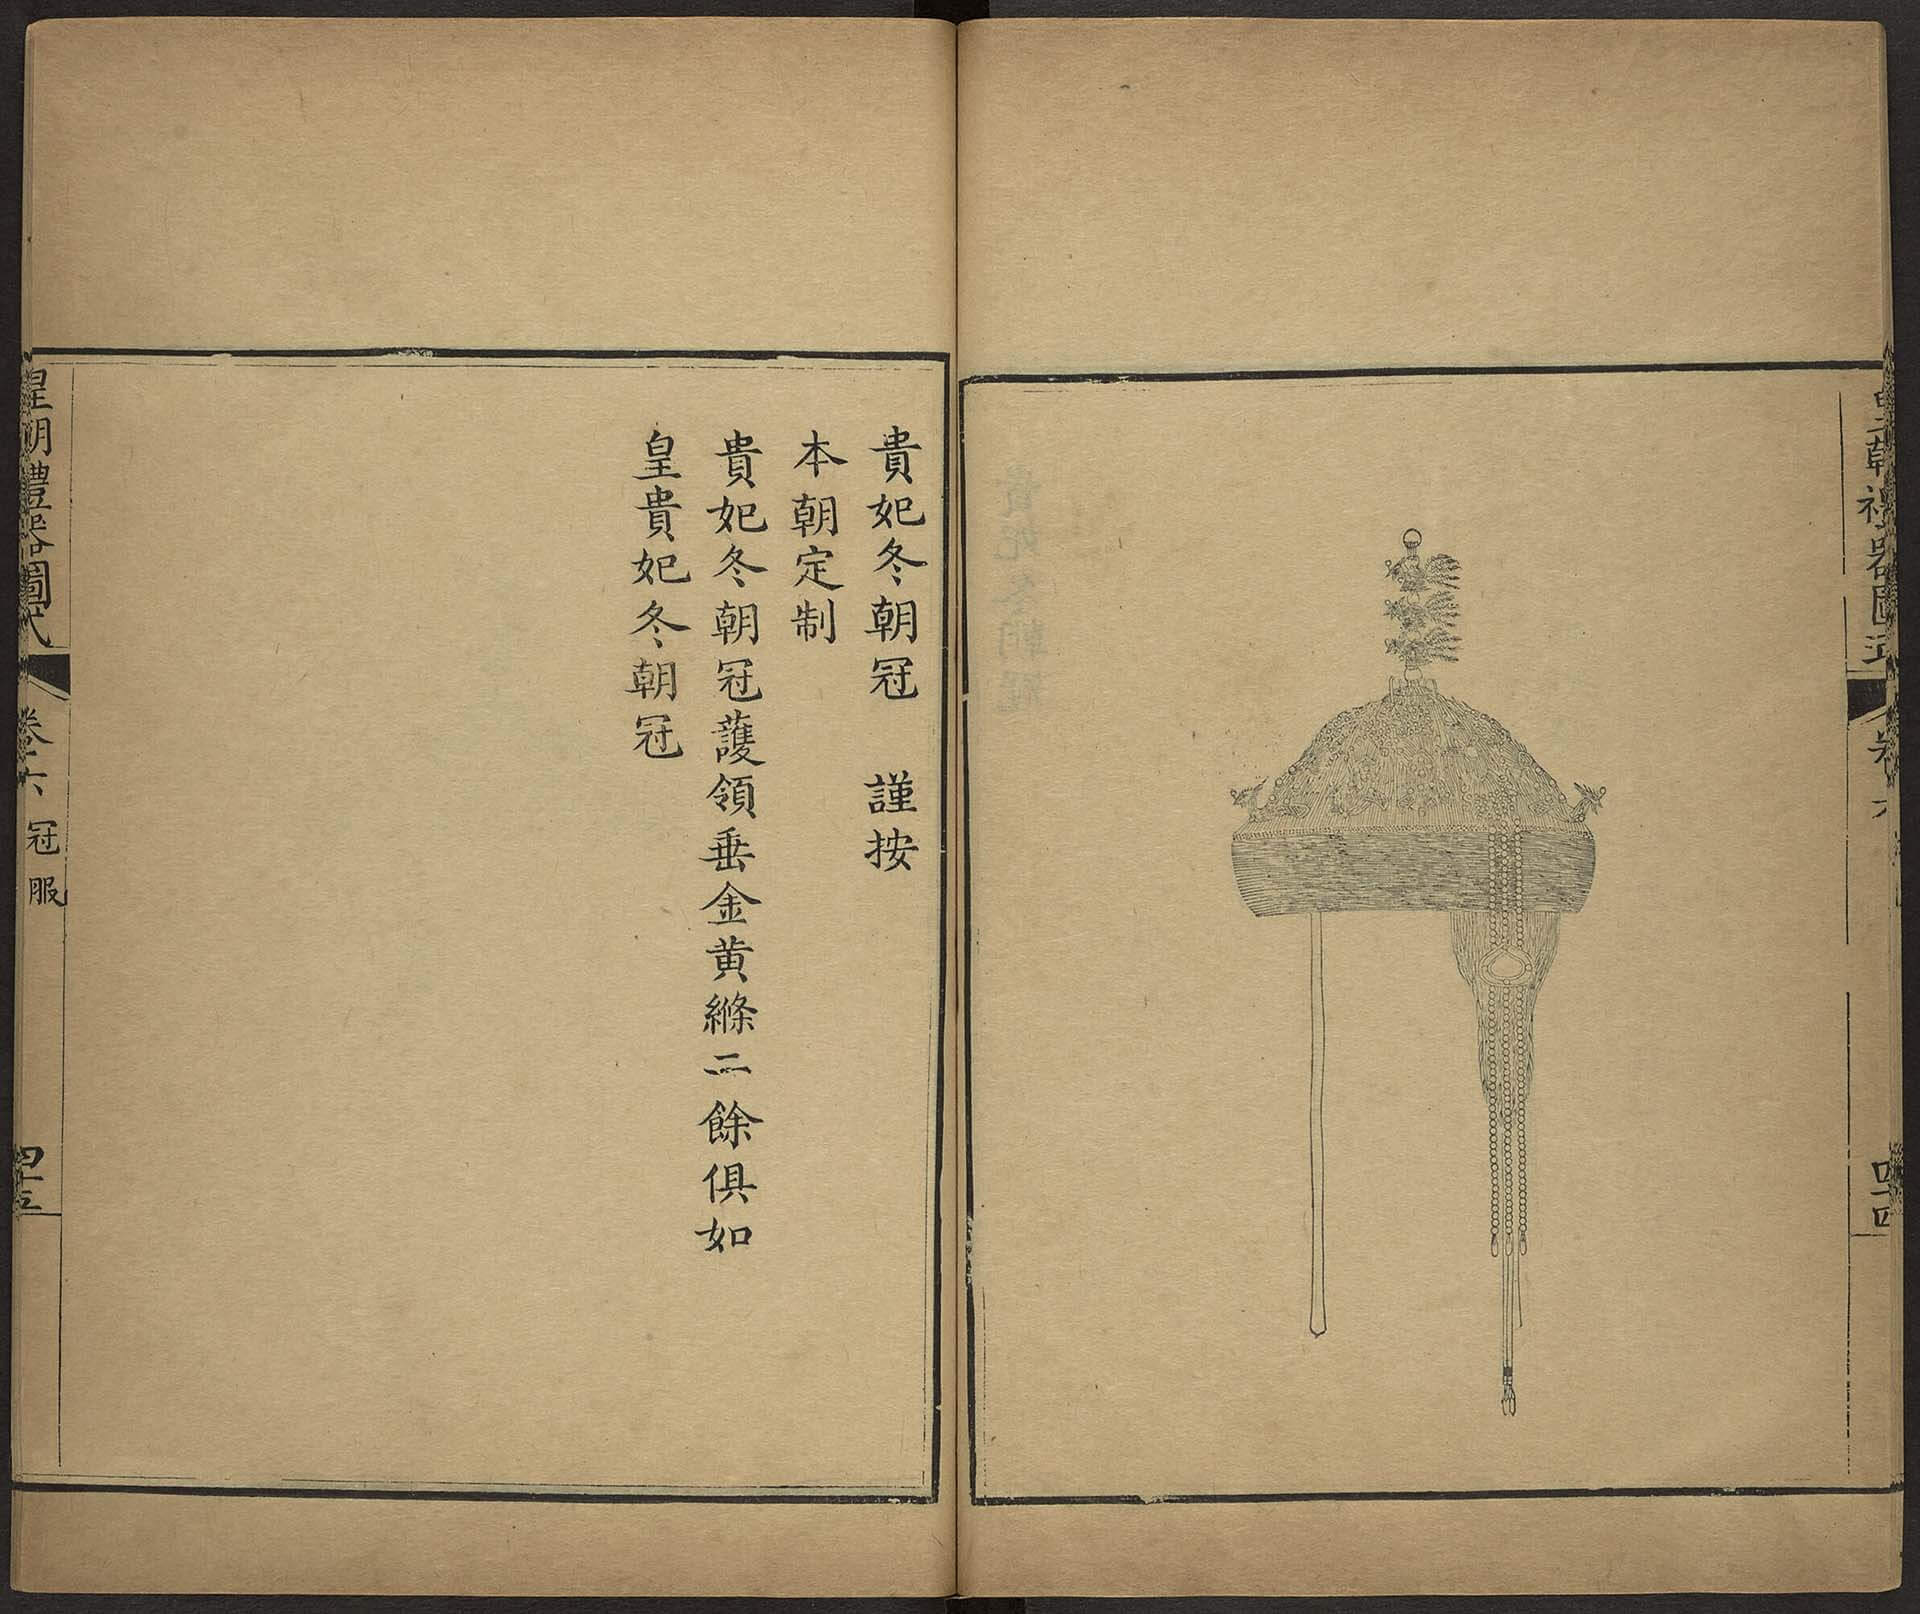 皇朝禮器圖式
卷六
四十四
貴妃冬朝冠
貴妃冬朝冠　謹按
本朝定制
貴妃冬朝冠䕶領垂金黄絛二餘俱如
皇貴妃冬朝冠
皇朝禮器圖式
卷六 冠服
四十五